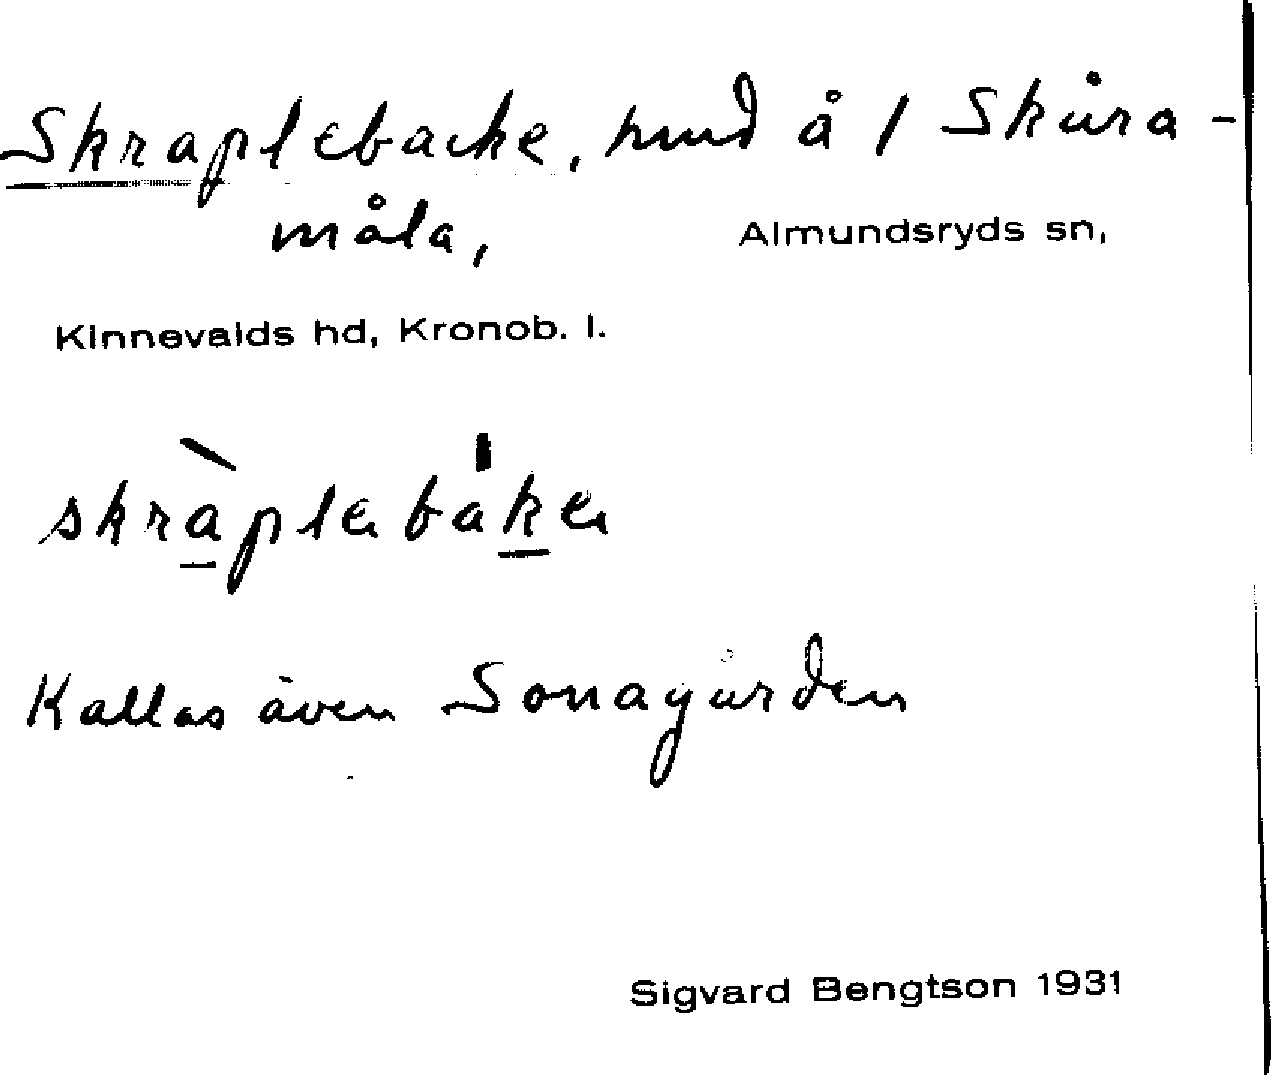 Skraplebacke, hmd å / Skåra-
måla, Almundsryds sn,
Kinnevalds hd, Kronob. l.
skràplebakɘ
Kallas även Sonagården
Sigvard Bengtson 1931